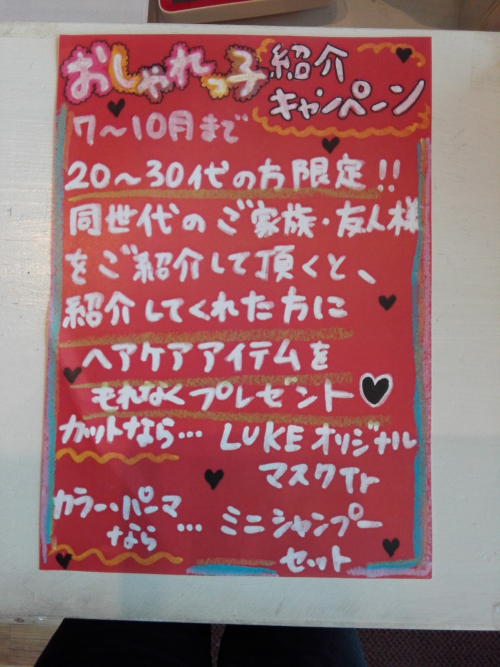 おしゃれっ子 紹介
キャンペーン
7〜10月まで
20〜30代の方限定!!
同世代のご家族・友人様
をご紹介して頂くと、
紹介してくれた方に
ヘアケアアイテムを
もれなくプレゼント
カットなら… LUKEオリジナル
マスクTr
カラー・パーマ
なら … ミニシャンプー
セット